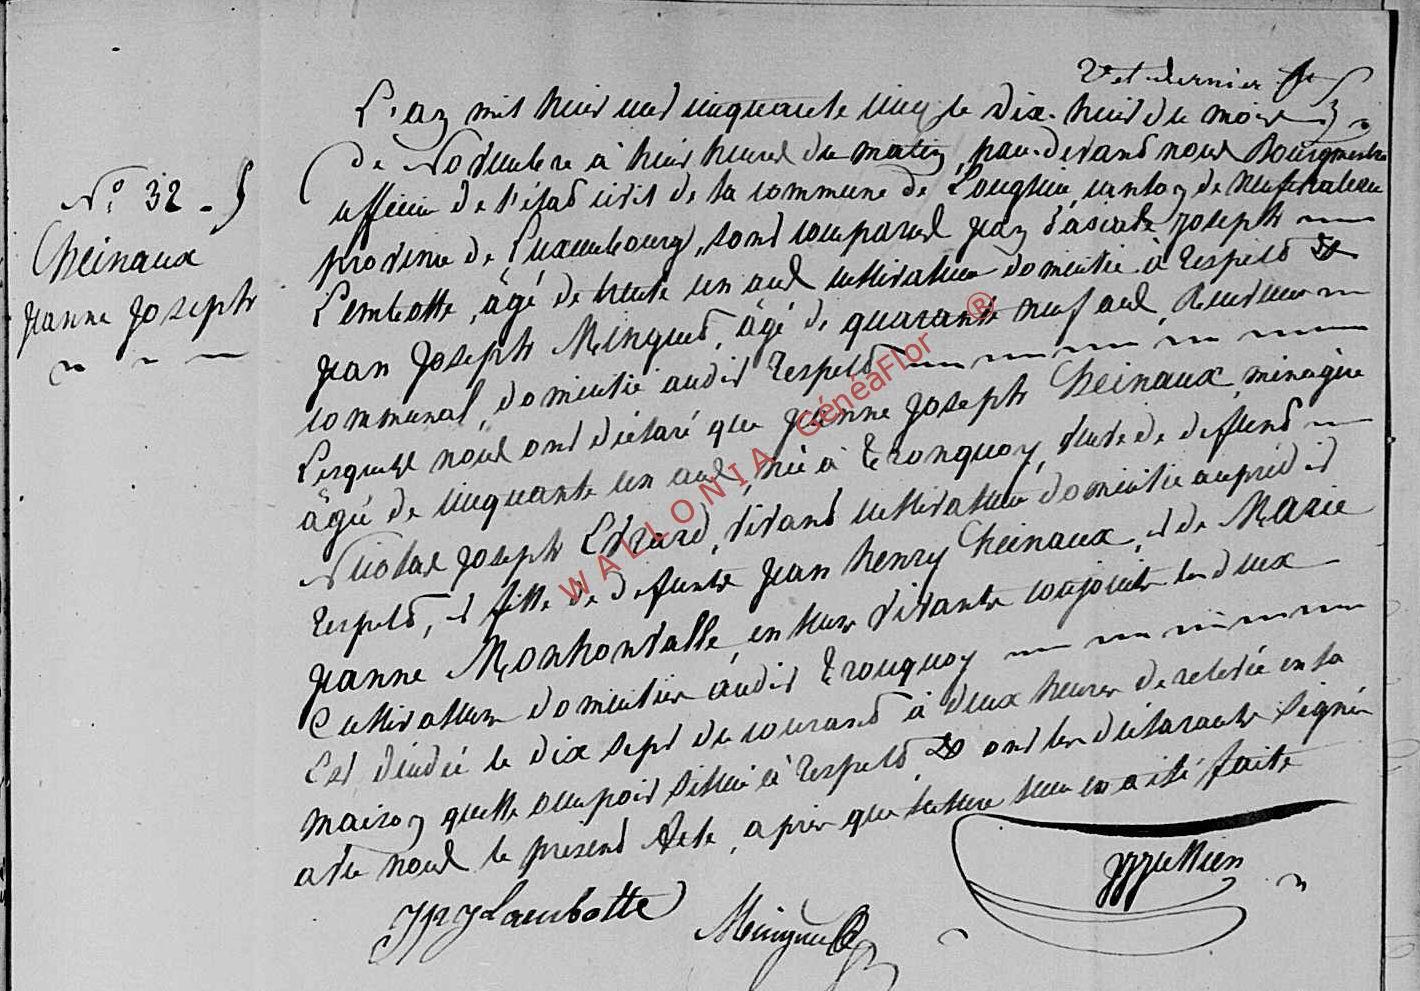 2e et dernier
L'an mil huit cent cinquante cinq le dix-huit du mois
de Novembre à huit heures du matin, par-devant nous Bourgmestre
officier de l'état civil de la commune de Longlier, canton de Neufchateau
province de Luxembourg, sont comparus Jean Pascale Joseph
Lembotte, âgé de trente un ans cultivateur domicilié à Respelt et
Jean Joseph Mingues, âgé de quarante neuf ans, Receveur
communal, domicilié audit Respelt
N° 32.
Cheinaux
Jeanne Joseph
Lesquels nous ont déclaré que Jeanne Joseph Cheinaux, ménagère
âgée de cinquante un ans, née à Tronquoy, veuve de deffunt
Nicolas Joseph Evrard, vivant cultivateur domicilié auprédit
Respelt, et fille de defunts Jean henry Cheinaux, et de Marie
Jeanne Monhonvalle, en leur vivants conjoints les deux
Cultivateurs domiciliés audit Tronquoy
Est décédée le dix sept du courant à deux heures de relevée en sa
maison quelle occupoit située à Respelt, et ont les déclarants signés
avec nous le présent Acte, après que lecture leur en a été faite
JPJ Lambotte
Mingues
WALLONIA GénéaFlor ®